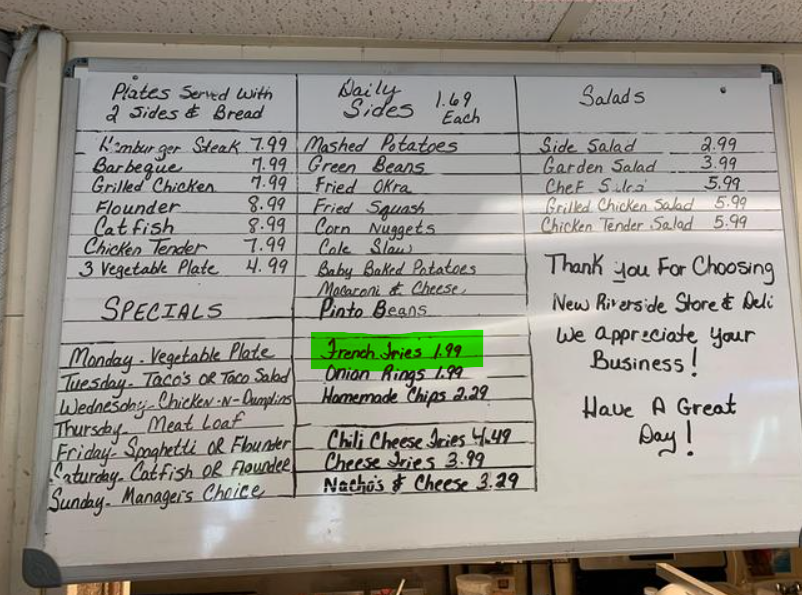 Plates Served With
2 Sides & Bread
Hamburger Steak 7.99
Barbeque 7.99
Grilled Chicken 7.99
Flounder 8.99
Catfish 8.99
Chicken Tender 7.99
3 Vegetable Plate 4.99
SPECIALS
Monday - Vegetable Plate
Tuesday - Taco's OR Taco Salad
Wednesday - Chicken-N-Dumplins
Thursday - Meat Loaf
Friday - Spaghetti OR Flounder
Saturday - Catfish OR Flounder
Sunday - Manager's Choice
Daily
Sides 1.69
Each
Mashed Potatoes
Green Beans
Fried Okra
Fried Squash
Corn Nuggets
Cole Slaw
Baby Baked Potatoes
Macaroni & Cheese
Pinto Beans
French Fries 1.99
Onion Rings 1.99
Homemade Chips 2.29
Chili Cheese Fries 4.49
Cheese Fries 3.99
Nacho's & Cheese 3.29
Salads
Side Salad 2.99
Garden Salad 3.99
Chef Salad 5.99
Grilled Chicken Salad 5.99
Chicken Tender Salad 5.99
Thank you For Choosing
New Riverside Store & Deli
We Appreciate Your
Business!
Have A Great
Day!